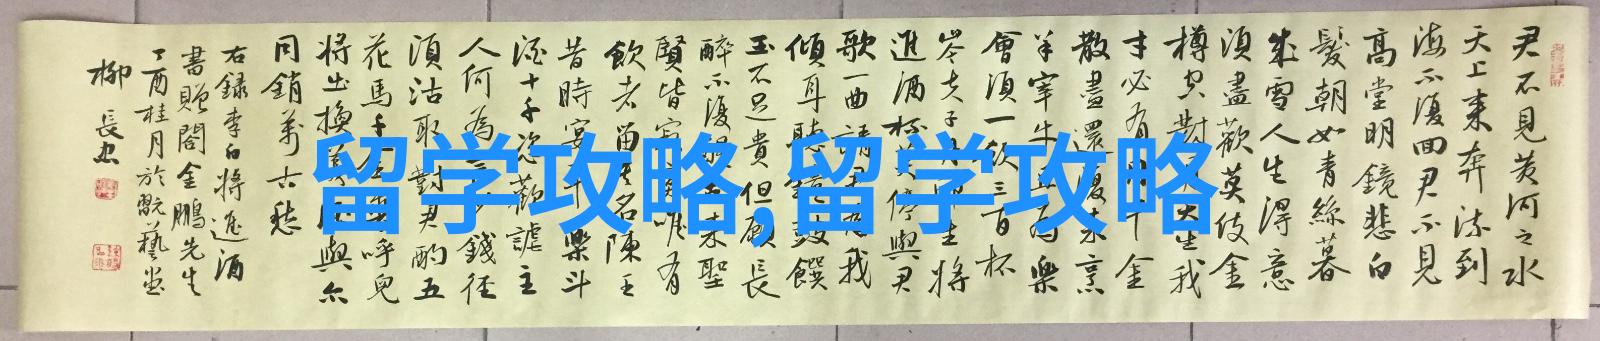 君不見黃河之水
天上來奔流到
海不復回君不見
高堂明鏡悲白
髮朝如青絲暮
成雪人生得意
須盡歡莫使金
樽空對月天生我
才必有用千金
散盡還復來烹
羊宰牛且為樂
會須一飲三百杯
岑夫子丹丘生將
進酒杯莫停與君
歌一曲請君為我
傾耳聽鐘鼓饌
玉不足貴但願長
醉不復醒古來聖
賢皆寂寞唯有
飲者留其名陳王
昔時宴平樂斗
酒十千恣歡謔主
人何為言少錢徑
須沽取對君酌五
花馬千金裘呼兒
將出換美酒與尔
同銷萬古愁
右録李白將進酒
書贈閤金鵬先生
丁酉桂月於翫藝堂
柳長忠
留学攻略,留学攻略